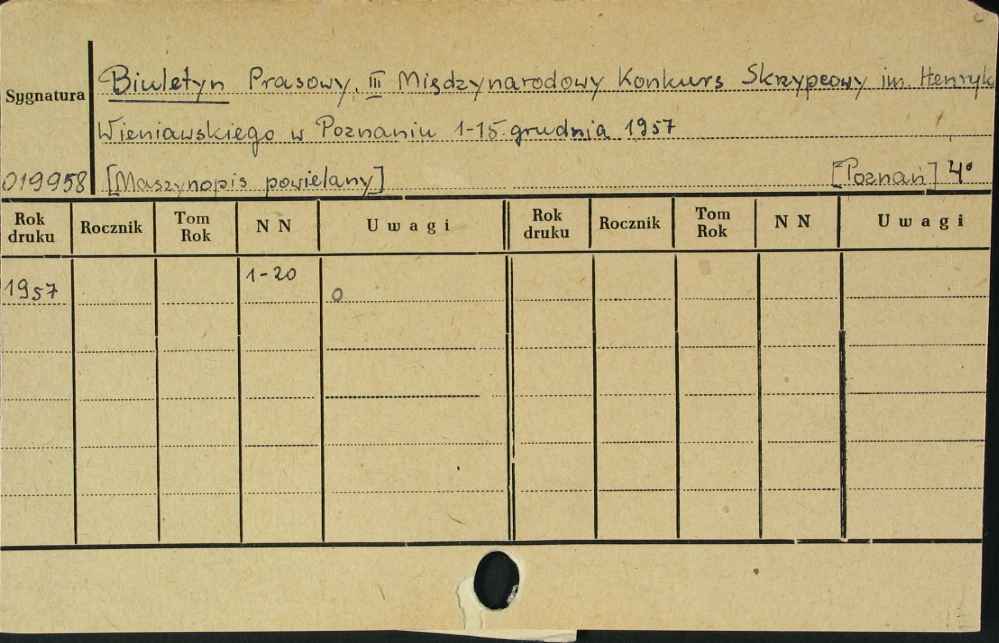 Biuletyn Prasowy. III Międzynarodowy Konkurs Skrzypcowy im. Henryk
Sygnatura
Wieniawskiego w Poznaniu 1-15 grudnia 1957
019958 [Maszynopis powielany] [Poznań] 4°
Rok druku Rocznik Tom Rok N N Uwagi Rok druku Rocznik Tom Rok N N Uwagi
1957 1-20